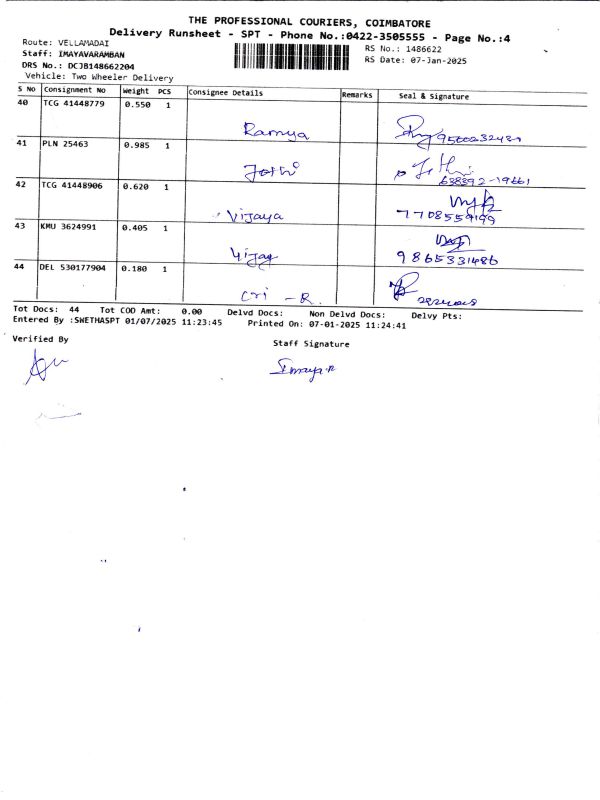 THE PROFESSIONAL COURIERS, COIMBATORE
Delivery Runsheet - SPT - Phone No.:0422-3505555 - Page No.:4
Route: VELLAMADAI
RS No.: 1486622
Staff: IMAYAVARAMBAN
RS Date: 07-Jan-2025
DRS No.: DCJB148662204
Vehicle: Two Wheeler Delivery
S No Consignment No Weight PCS Consignee Details Remarks Seal & Signature
40 TCG 41448779 0.550 1
Ramya
41 PLN 25463 0.985 1
Jothi
638392-19661
42 TCG 41448906 0.620 1
Vijaya 7708559199
43 KMU 3624991 0.405 1
Vijay 9865331486
44 DEL 530177904 0.180 1
cri - R.
Tot Docs: 44 Tot COD Amt: 0.00 Delvd Docs: Non Delvd Docs: Delvy Pts:
Entered By :SWETHASPT 01/07/2025 11:23:45 Printed On: 07-01-2025 11:24:41
Verified By
Staff Signature